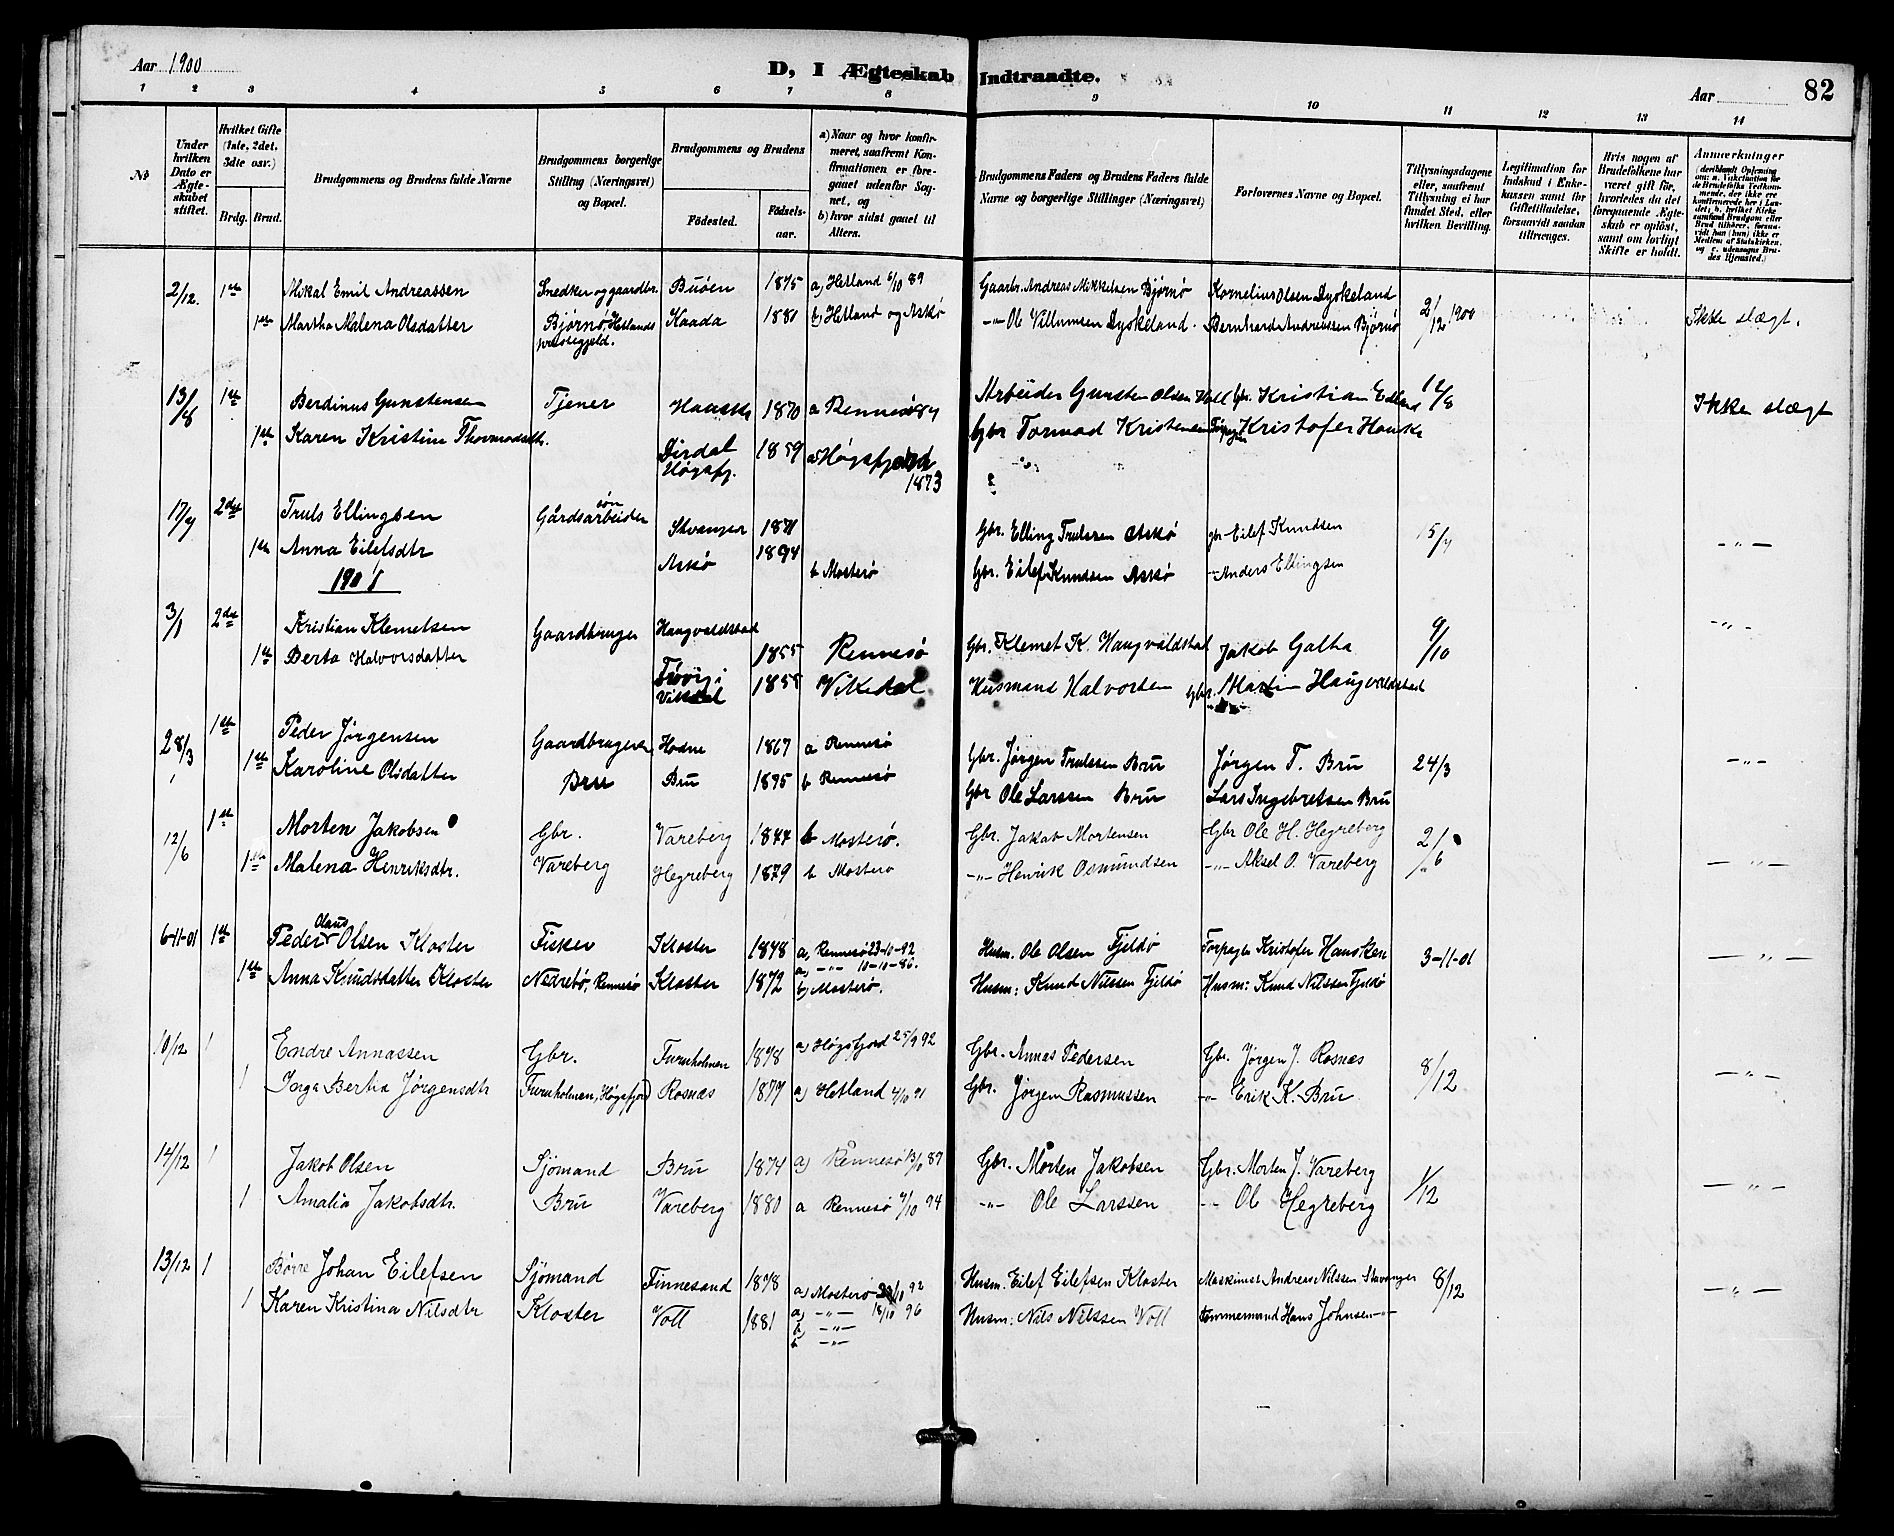 Aar 1900
D, I Ægteskab Indtraadte.
Aar
82
1 2 3 4 5 6 7 8 9 10 11 12 13 14
No
Under hvilken Dato er Ægteskabet stiftet.
Hvilket Gifte (1ste, 2det, 3die osv.)
Brdg. Brud.
Brudgommens og Brudens fulde Navne
Brudgommens borgerlige Stilling (Næringsvei) og Bopæl.
Brudgommens og Brudens
Fødested.
Fødselsaar.
a) Naar og hvor konfirmeret, saafremt Konfirmationen er foregaaet udenfor Sognet, og
b) hvor sidst gaaet til Alters.
Brudgommens Faders og Brudens Faders fulde Navne og borgerlige Stillinger (Næringsvei)
Forlovernes Navne og Bopæl.
Tillysningsdagene eller, saafremt Tillysning ei har fundet Sted, efter hvilken Bevilling.
Legitimation for Indskud i Enkekassen samt for Giftetilladelse, forsaavidt saadan tiltrænges.
Hvis nogen af Brudefolkene har været gift før, hvorledes da det foregaaende Ægteskab er opløst, samt om lovligt Skifte er holdt.
Anmærkninger
2/12. 1ste Mikal Emil Andreassen Snedker og gaardbr. Buøen 1875 a) Hetland 6/10 89 Gaarbr. Andreas Mikkelsen Bjørnø Kornelius Olsen Dyskeland 2/12 1900 Ikke slægt.
1ste Martha Malena Olsdatter Bjørnø, Hetlands præstegjeld. Haada 1881 b) Hetland og Askø -"- Ole Villumsen Dyskeland. Bernhard Andreassen Bjørnø
13/8 1ste Berdinus Gunstensen Tjener Hauske 1870 a Rennesø 84 Arbeider Gunsten Olsen Gbr. Kristian Edland 12/8 Ikke slægt
1ste Karen Kristine Thormodsdtr. Dirdal Høgsfj. 1859 a Høgsfjord 1873 Gbr Tormod Kristensen Kristofer Hauske
17/7 2det Truls Ellingsen Gårdsarbeider søn Stvanger 1871 Gbr. Elling Trulssen Askø gbr Eilef Knudsen 15/7 -"-
1ste Anna Eilefsdtr Askø 1874 b Mosterø Gbr. Eilef Knudsen Askø -"- Anders Ellingsen
1901
3/1 2det Kristian Klemetsen Gaardbruger Haugvaldstad 1855 Rennesø Gbr. Klemet K. Haugvaldstad Jakob Galta 9/10 -"-
1ste Berta Halvorsdatter Vikedal 1855 Vikedal Husmand Halvorsen Gbr. Martin Haugvaldstad
28/3 1ste Peder Jørgensen Gaardbrugeren Hodne 1867 a Rennesø Gbr. Jørgen Trulssen Bru Jørgen T. Bru 24/3 -"-
1ste Karoline Olsdatter Bru Bru 1875 b Rennesø Gbr Ole Larssen Bru Lars Ingebretsen Bru
12/6 1ste Morten Jakobsen Gbr. Vareberg 1877 b Mosterø. Gbr. Jakob Mortensen Gbr Ole H. Hegreberg 2/6 -"-
1ste Malena Henriksdtr. Vareberg Hegreberg 1879 b Mosterø -"- Henrik Osmundsen -"- Aksel O. Vareberg
6-11-01 1ste Peder Claus Olsen Kloster Fisker Kloster 1878 a, Rennesø 23-10-92 Husm. Ole Olsen Fjeldø Forpagter Kristofer Hausken 3-11-01 -"-
1ste Anna Knudsdatter Kloster Nedrebø, Rennesø Kloster 1872 a) -"- 10-10-86. b) Mosterø. Husm: Knud Nilssen Fjeldø Husm: Knud Nilssen Fjeldø
10/12 1 Endre Annassen Gbr. Furuholmen 1878 a) Høgsfjord 25/9 92 Gbr. Annas Pedersen Gbr. Jørgen J. Rosnæs 8/12 -"-
1 Inga Bertia Jørgensdtr Furuholmen, (Høgsfjord) Rosnæs 1879 a) Hetland 4/10 91 Gbr. Jørgen Rasmussen -"- Erik K. Bru
14/12 1 Jakob Olsen Sjømand Bru 1874 a) Rennesø 13/10 89 Gbr. Morten Jakobsen Gbr. Morten J. Vareberg 1/12 -"-
1 Amalia Jakobsdtr. Bru Vareberg 1880 a Rennesø 7/10 94 -"- Ole Larssen -"- Ole Hegreberg
13/12 1 Børre Johan Eilefsen Sjømand Finnesand 1878 a) Mosterø 23/10 92 Husm. Eilef Eilefsen Kloster Maskinist Andreas Nilssen Stavanger 8/12 -"-
1 Karen Kristina Nilsdtr Kloster Voll 1881 a) -"- 18/10 96 Husm: Nils Nilssen Voll Tømmermand Hans Johnsen -"-
b) -"-
b -"-